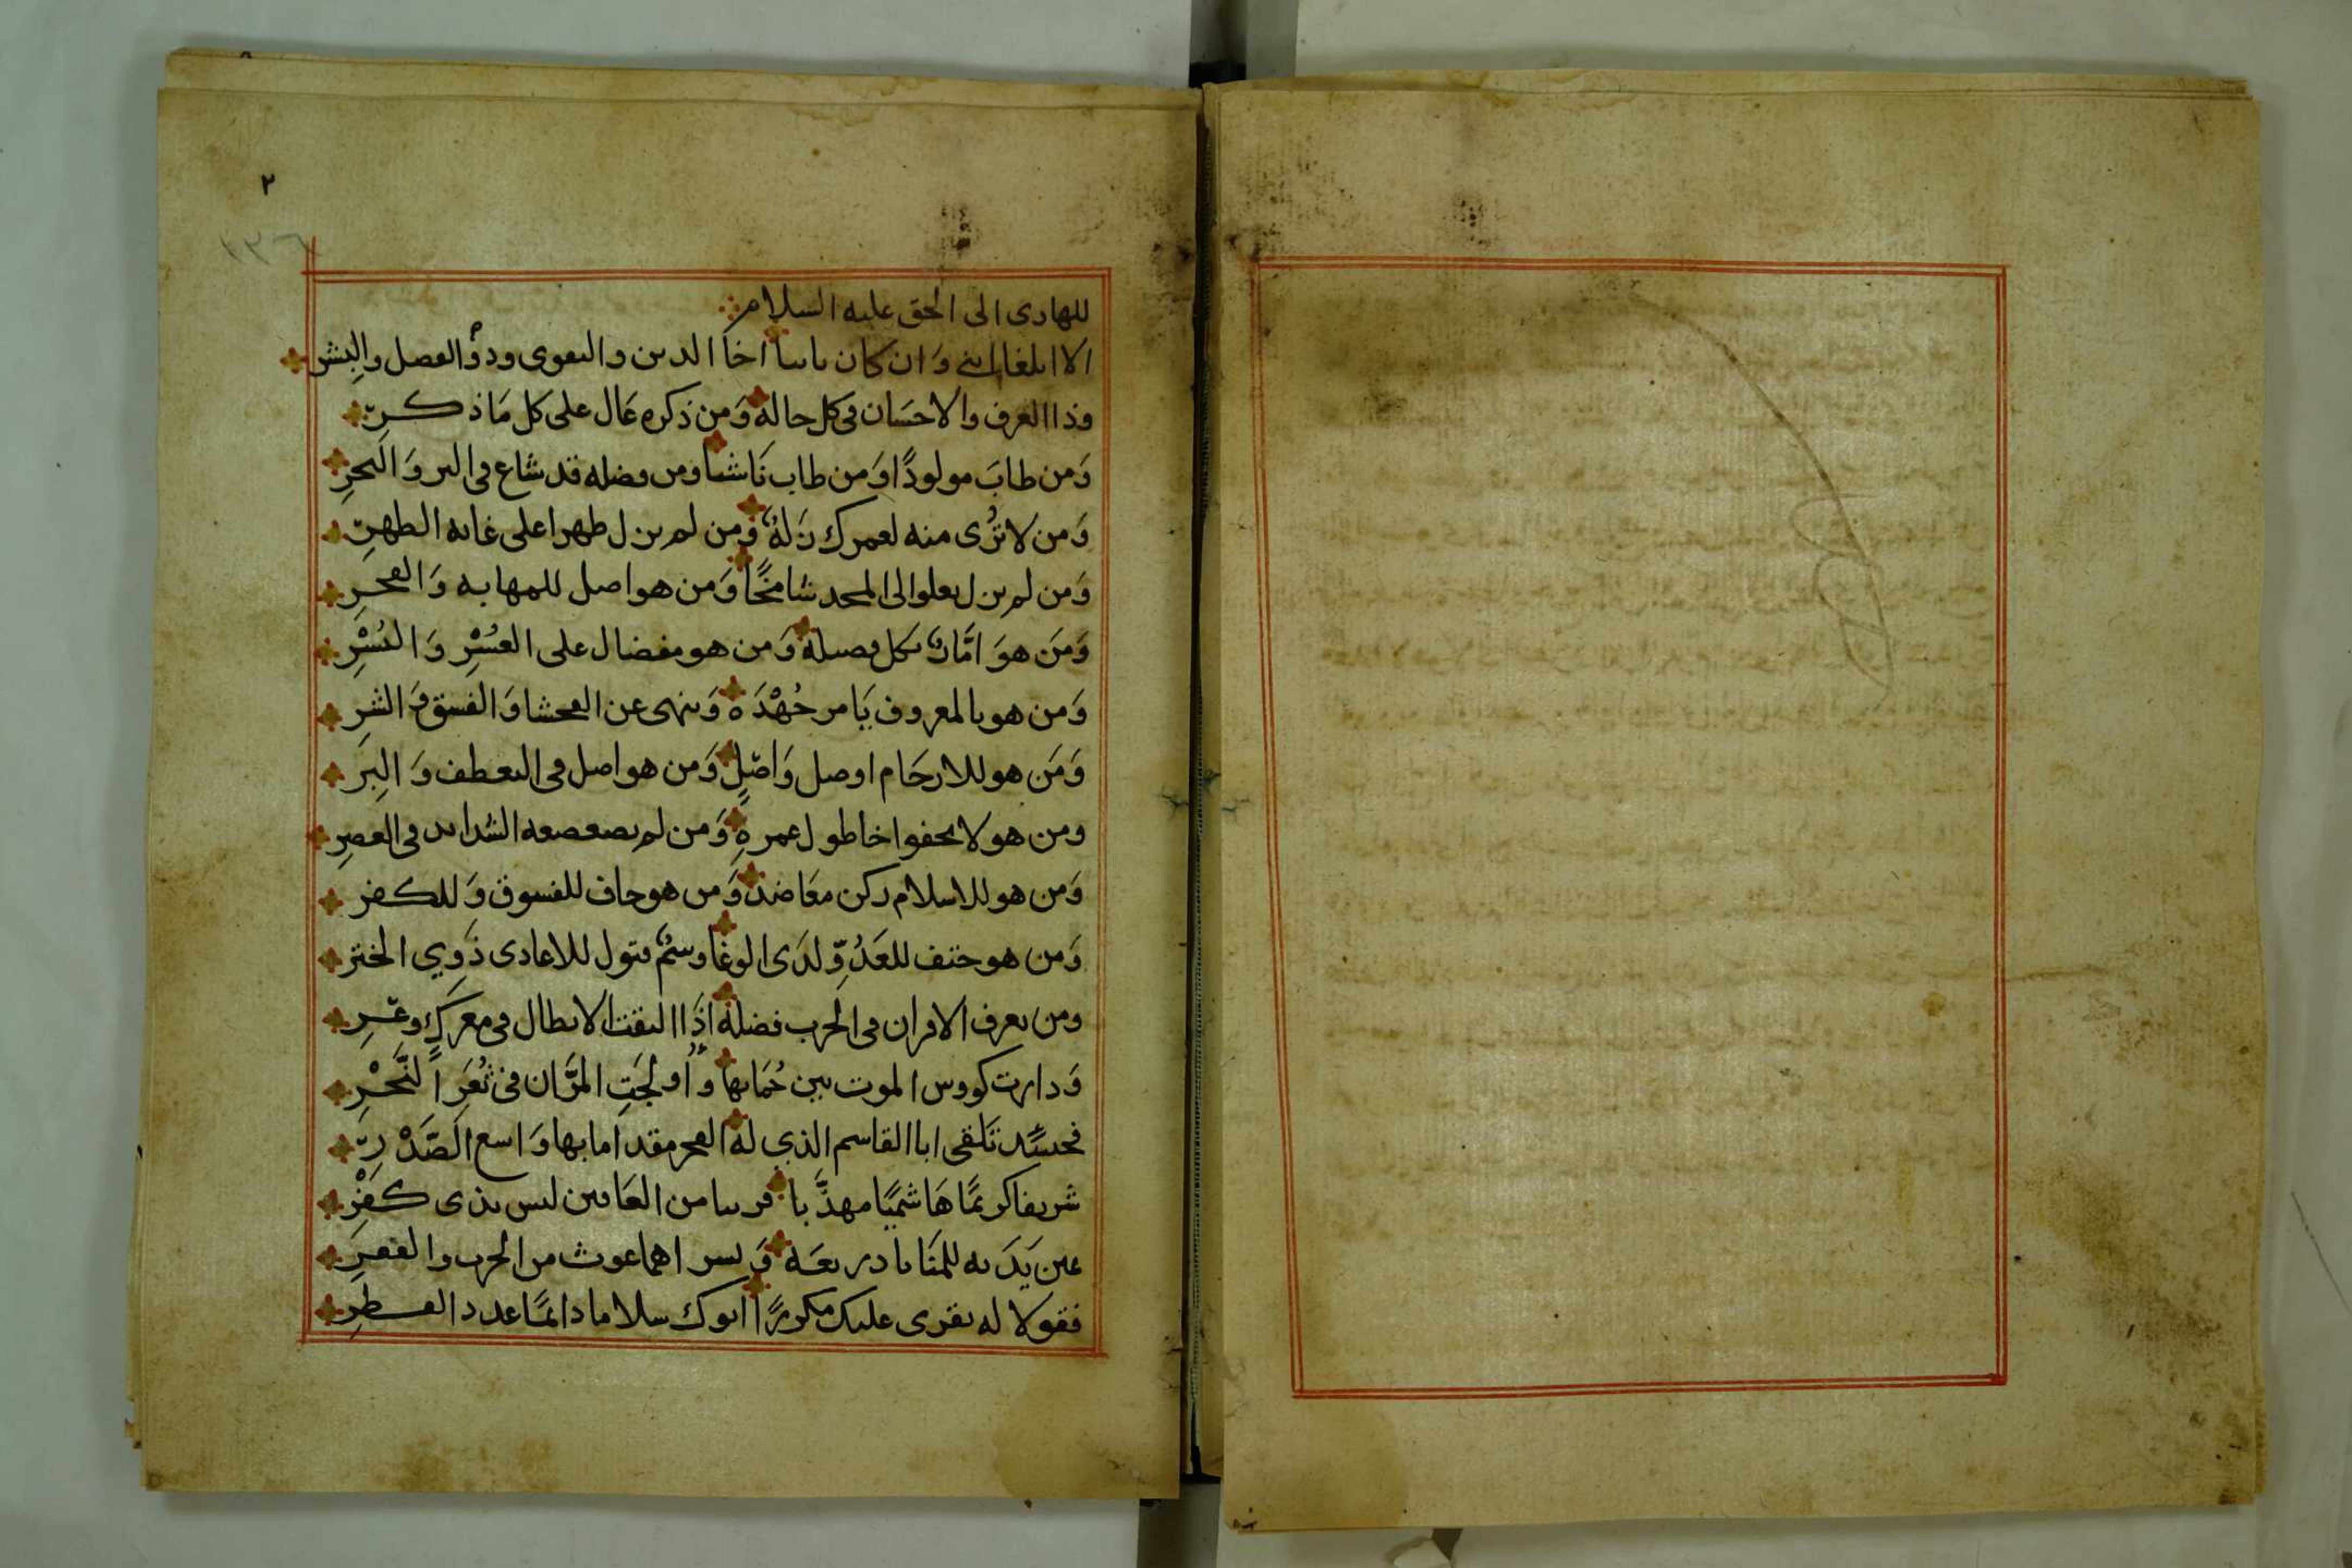 ٢
١٣٦
للهادى الى الحق عليه السلام
الا ابلغا ابنى وان كان نائيا اخا الدين والتقوى وذو الفضل والبشر
وذا العرف والاحسان فى كل حاله ومن ذكره عال على كل ما ذكر
ومن طابَ مولودًا ومن طاب ناشئا ومن فضله قد شاع فى البر والبحرِ
ومن لا ترُى منه لعمرك زلة ومن لم يزل طهرا على غاية الطهر
ومن لم يزل يعلوا الى المجد شامخًا ومن هو اصل للمهابه والفخرِ
ومن هوَ امَّار بكل فضيله ومن هو مفضال على العُسْرِ واليُسْرِ
ومن هو بالمعروف يَامر جُهْدَه وينهى عن الفحشا والفسق والشر
ومَن هو للارحَام اوصل وَاصِلٍ ومن هو اصل فى التعطف وَالبِرَ
ومن هو لا يجفوا اخا طول عمرهِ ومن لم تضعضعه الشدايد فى العصرِ
ومن هو للاسلام ركن معَاضد ومن هو جاف للفسوق وَللكفر
ومن هو حتف للعَدُوِّ لدَى الوغا وسمٌ قتول للاعادى ذَوِي الختر
ومن تعرف الاقران فى الحرب فضله اذَا التقت الابطال فى معركٍ وعرِ
وَدارت كووس الموت بين حُمَاتها وأولجَتِ المرَّان فى ثُغَرِ النَّحْرِ
فحينئذ تَلقى ابا القاسم الذي له الفخر مقداما بها وَاسع الصَّدْرِ
شريفا كريمًا هَاشميًا مهذَّبا قريبا من العَافين ليس بذى كفْرِ
يمين يَدَيه للمنَايا دريعَه وَيسراهما غوث من الحرب والفقرِ
فقولا له يقرى عليك مكررًا ابوك سلاما دائمًا عدد القطرِ